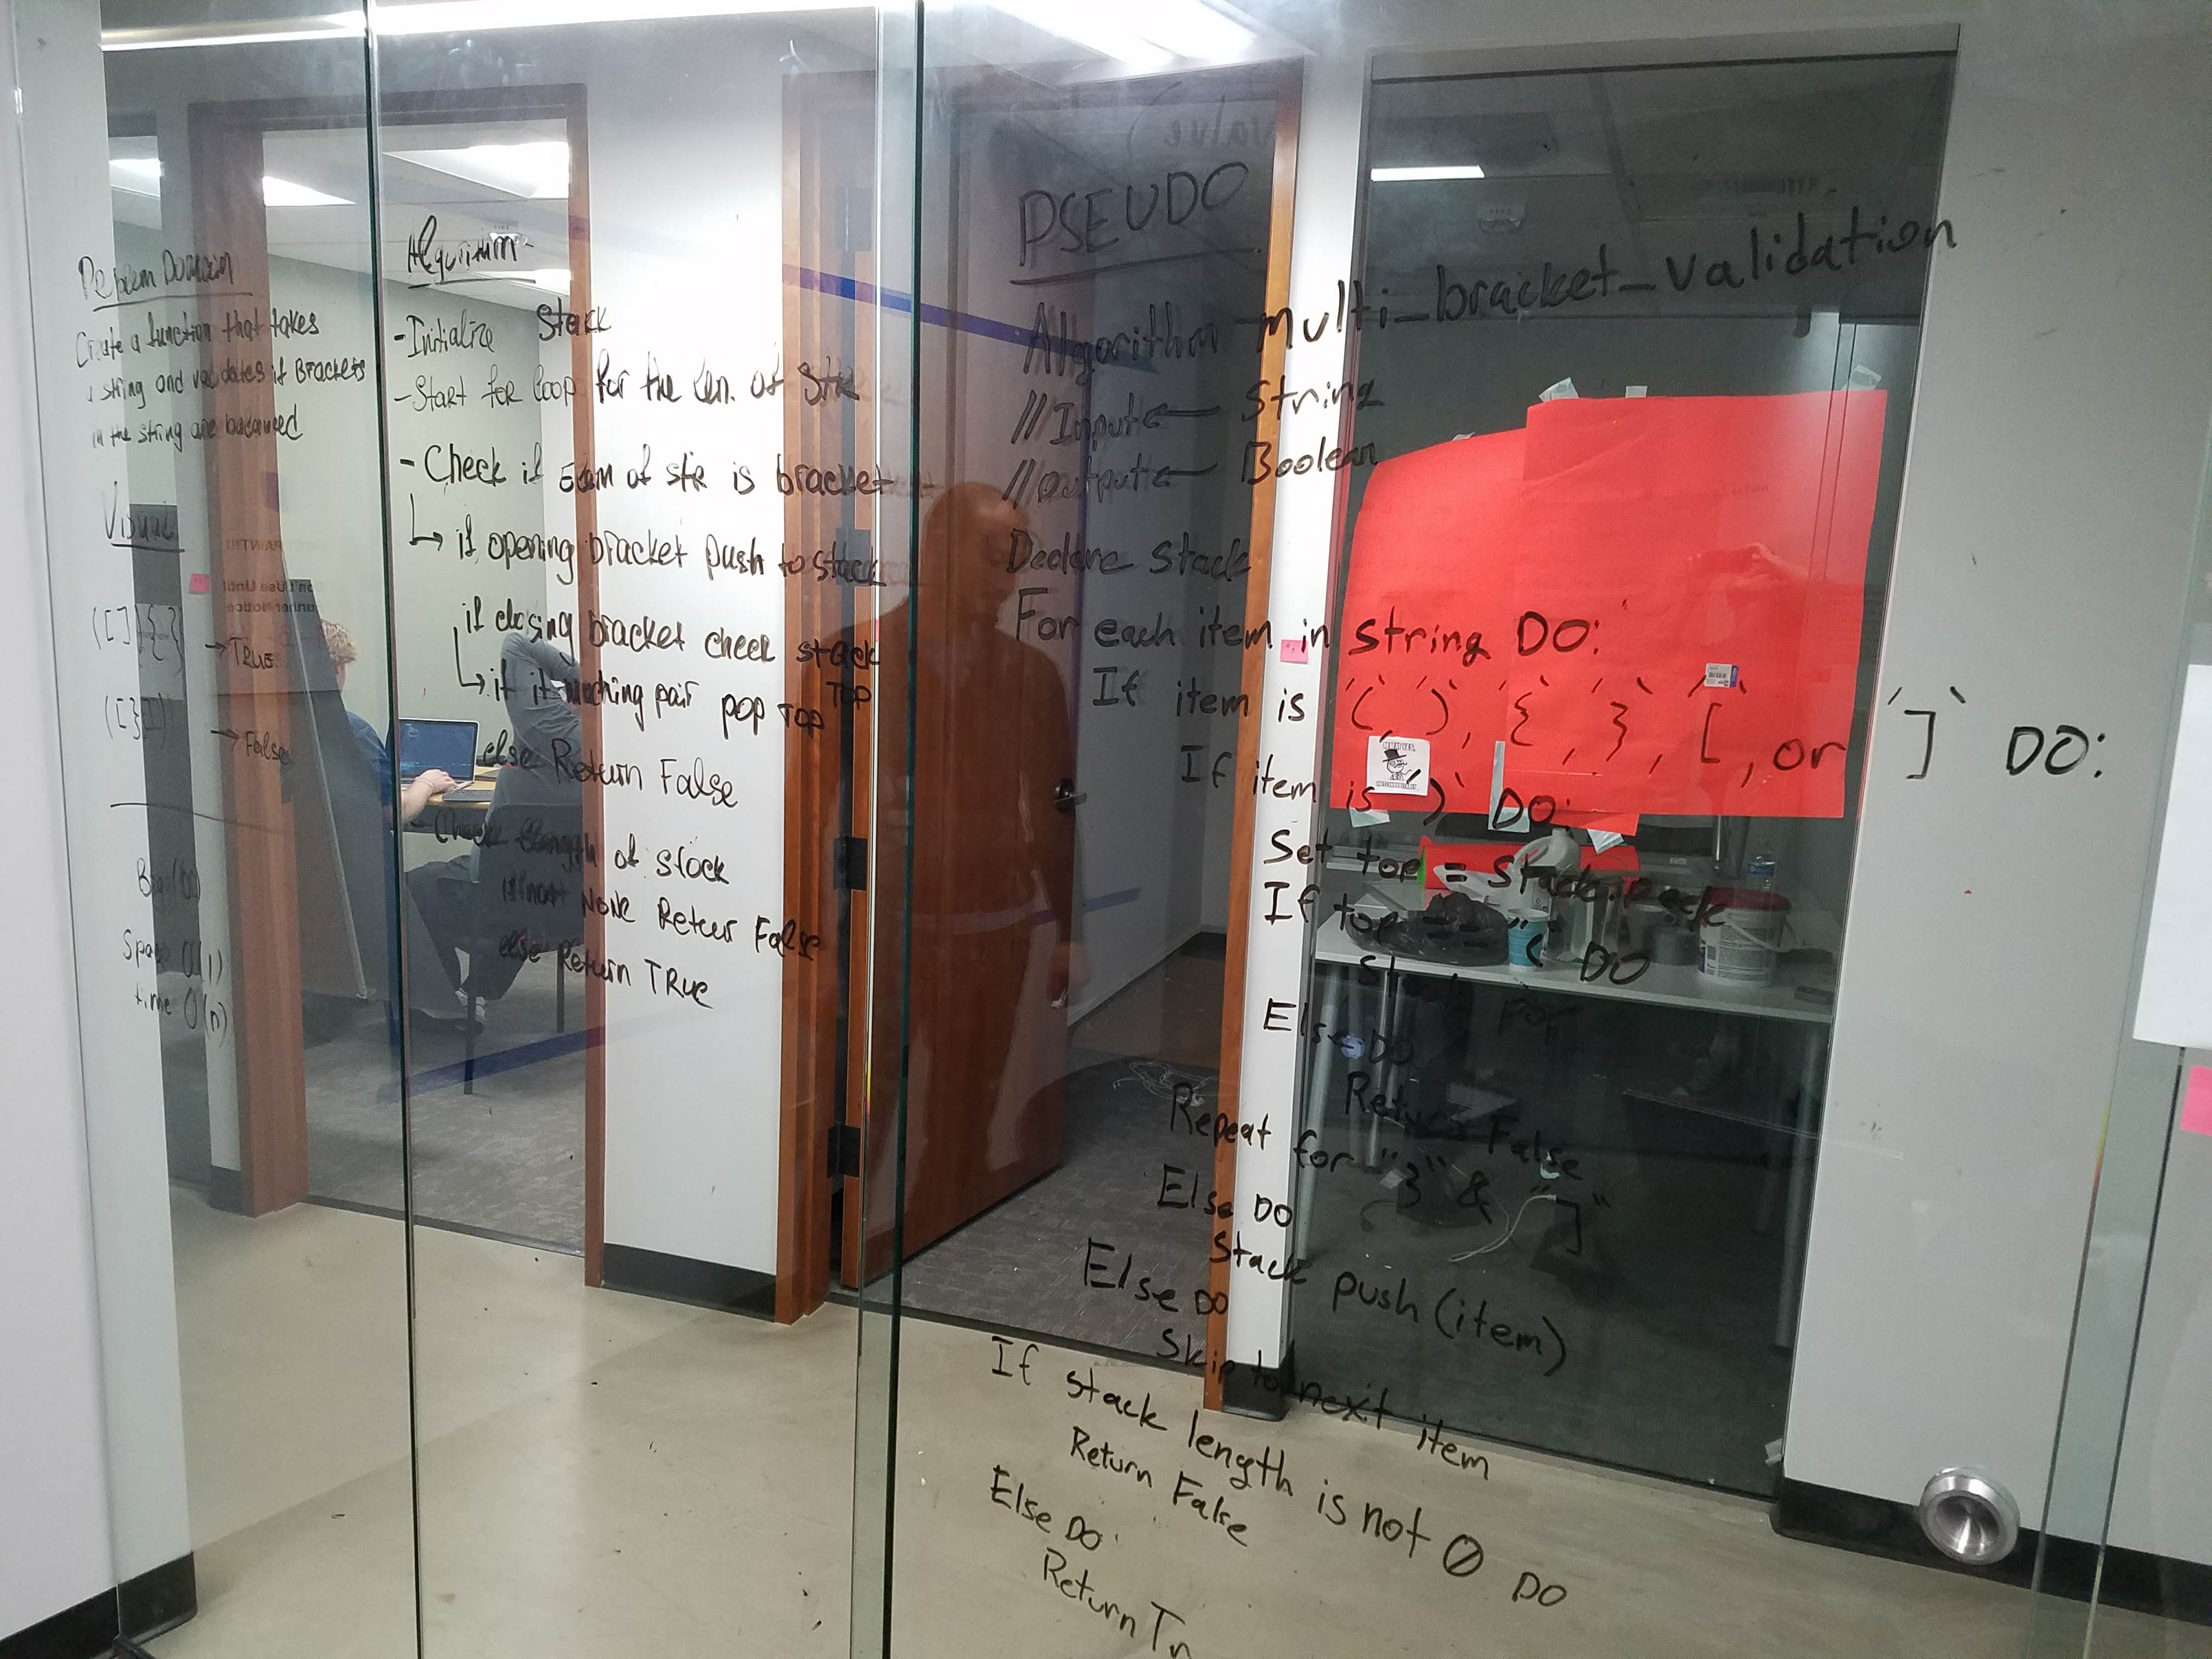 Problem Domain
Create a function that takes
a string and validates if Brackets
in the string are balanced
Visual
([]){}
→ TRUE
→ False
Big(O)
Space O(1)
time O(n)
Algorithm
- Initialize Stack
- Start for loop for the len. of str
- Check if Elem of str is bracket
↳ if opening bracket push to stack
if closing bracket check stack TOP
↳ if it matching pair pop TOP
else Return False
- Check length of stack
if not None Return False
else Return TRUE
PSEUDO
Algorithm multi_bracket_validation
//Input ← String
//output ← Boolean
Declare Stack
For each item in string DO:
If item is '(`, ')`, '{`, '}`, '[`, or ']` DO:
If item is ')` DO:
Set top = stack.peek
If top == "(" DO
Stack pop
Else DO
Return False
Repeat for "}" & "]"
Else DO
Stack push (item)
Else DO
Skip to next item
If stack length is not 0 DO
Return False
Else DO:
Return Tr